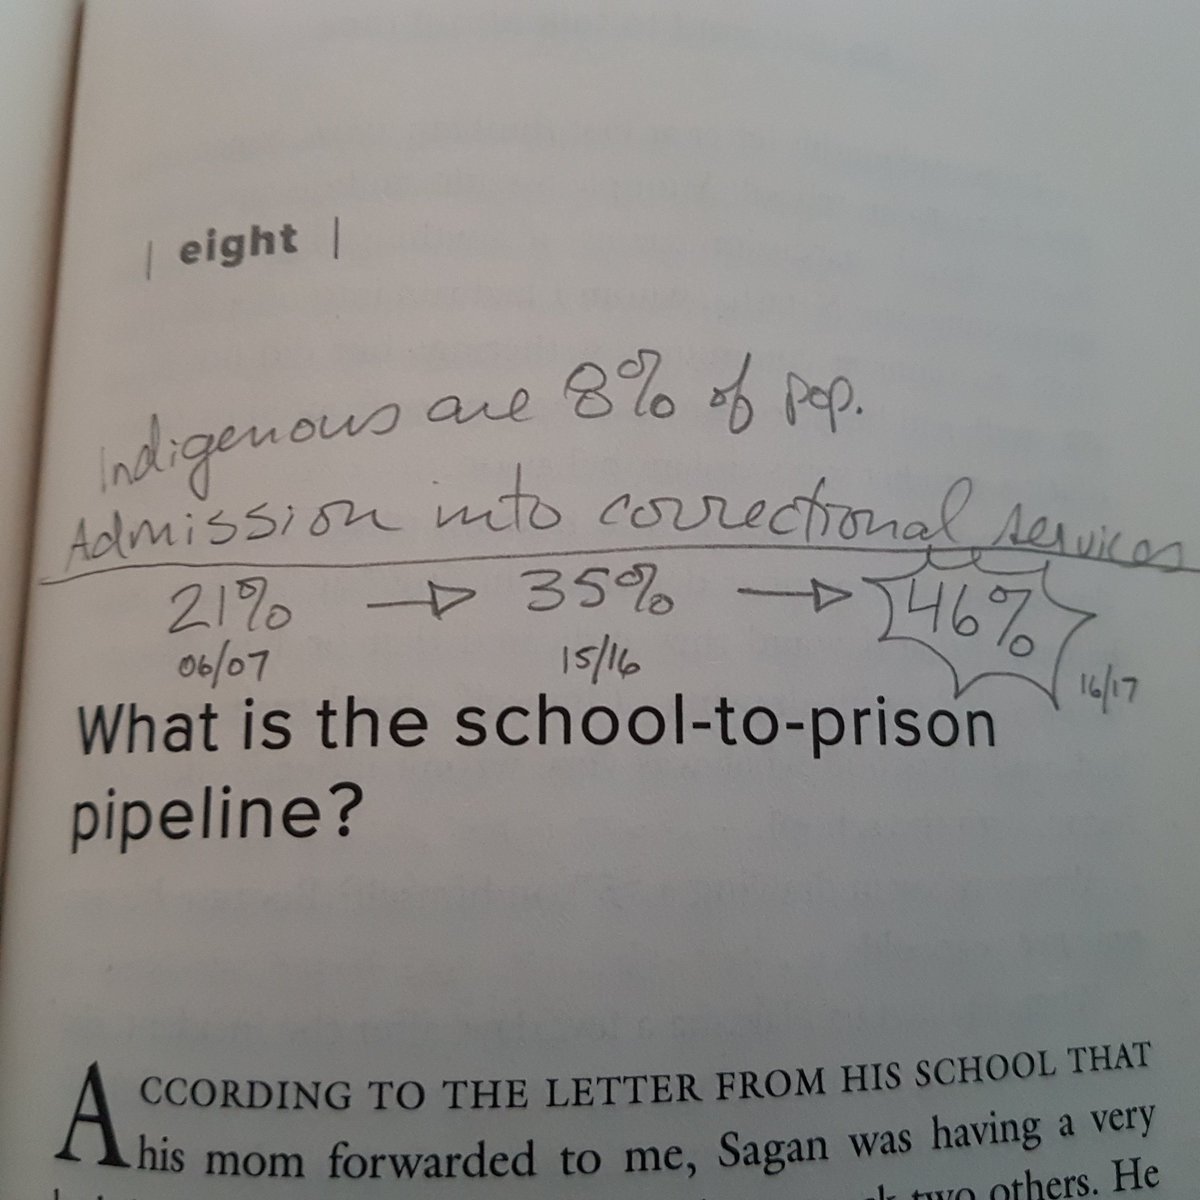 | eight |
Indigenous are 8% of pop.
Admission into correctional services
21% → 35% → 46%
06/07 15/16 16/17
What is the school-to-prison
pipeline?
ACCORDING TO THE LETTER FROM HIS SCHOOL THAT
his mom forwarded to me, Sagan was having a very
two others. He